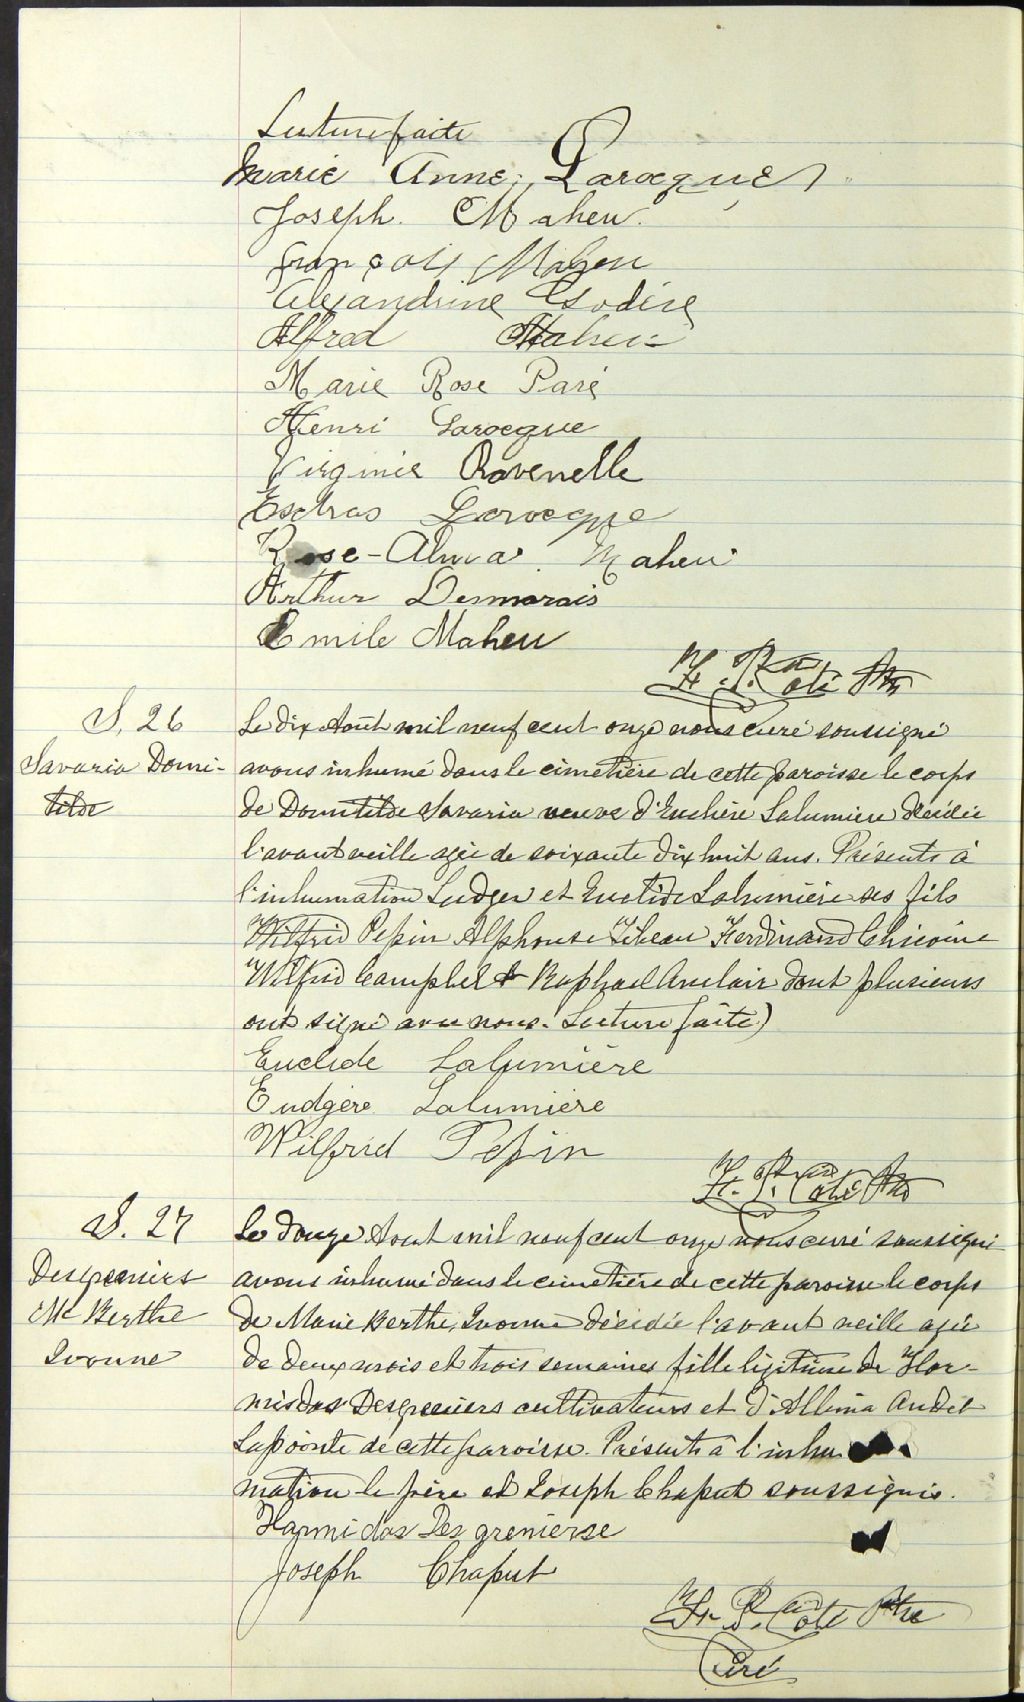 Lecture faite
Marie Anne Larocque
Joseph Maheu.
François Maheu
Alexandrine Isodère
Alfred Maheu
Marie Rose Paré
Henri Larocque
Virginie Ravenelle
Esdras Larocque
Rose-Alma Maheu
Arthur Desmarais
Emile Maheu
Côté Ptre
S. 26
Savaria Domi-
tilde
Le dix Août mil neuf cent onze nous curé soussigné
avons inhumé dans le cimetière de cette paroisse le corps
de Domitilde Savaria veuve d'Euchère Lalumière décédée
l'avant veille agée de soixante dix huit ans. Présents à
l'inhumation Ludger et Euclide Lalumière ses fils
Wilfrid Pepin Alphonse Ferdinand Chicoine
Wilfrid Campbel & Raphael Auclair dont plusieurs
ont signé avec nous. Lecture faite)
Euclide Lalumière
Eudgère Lalumière
Wilfrid Pepin
Côté Ptre
S. 27
Desgreniers
Mie Berthe
Ivonne
Le douze Aout mil neuf cent onze nous curé soussigné
avons inhumé dans le cimetière de cette paroisse le corps
de Marie Berthe Ivonne décédée l'avant veille agée
de deux mois et trois semaines fille légitime de Hor-
misdas Desgreniers cultivateurs et d'Albina Audet
Lapointe de cette paroisse. Présents à l'inhu
mation le père et Joseph Chaput soussignés.
Harmidas Des grenierse
Joseph Chaput
Côté Ptre
Curé